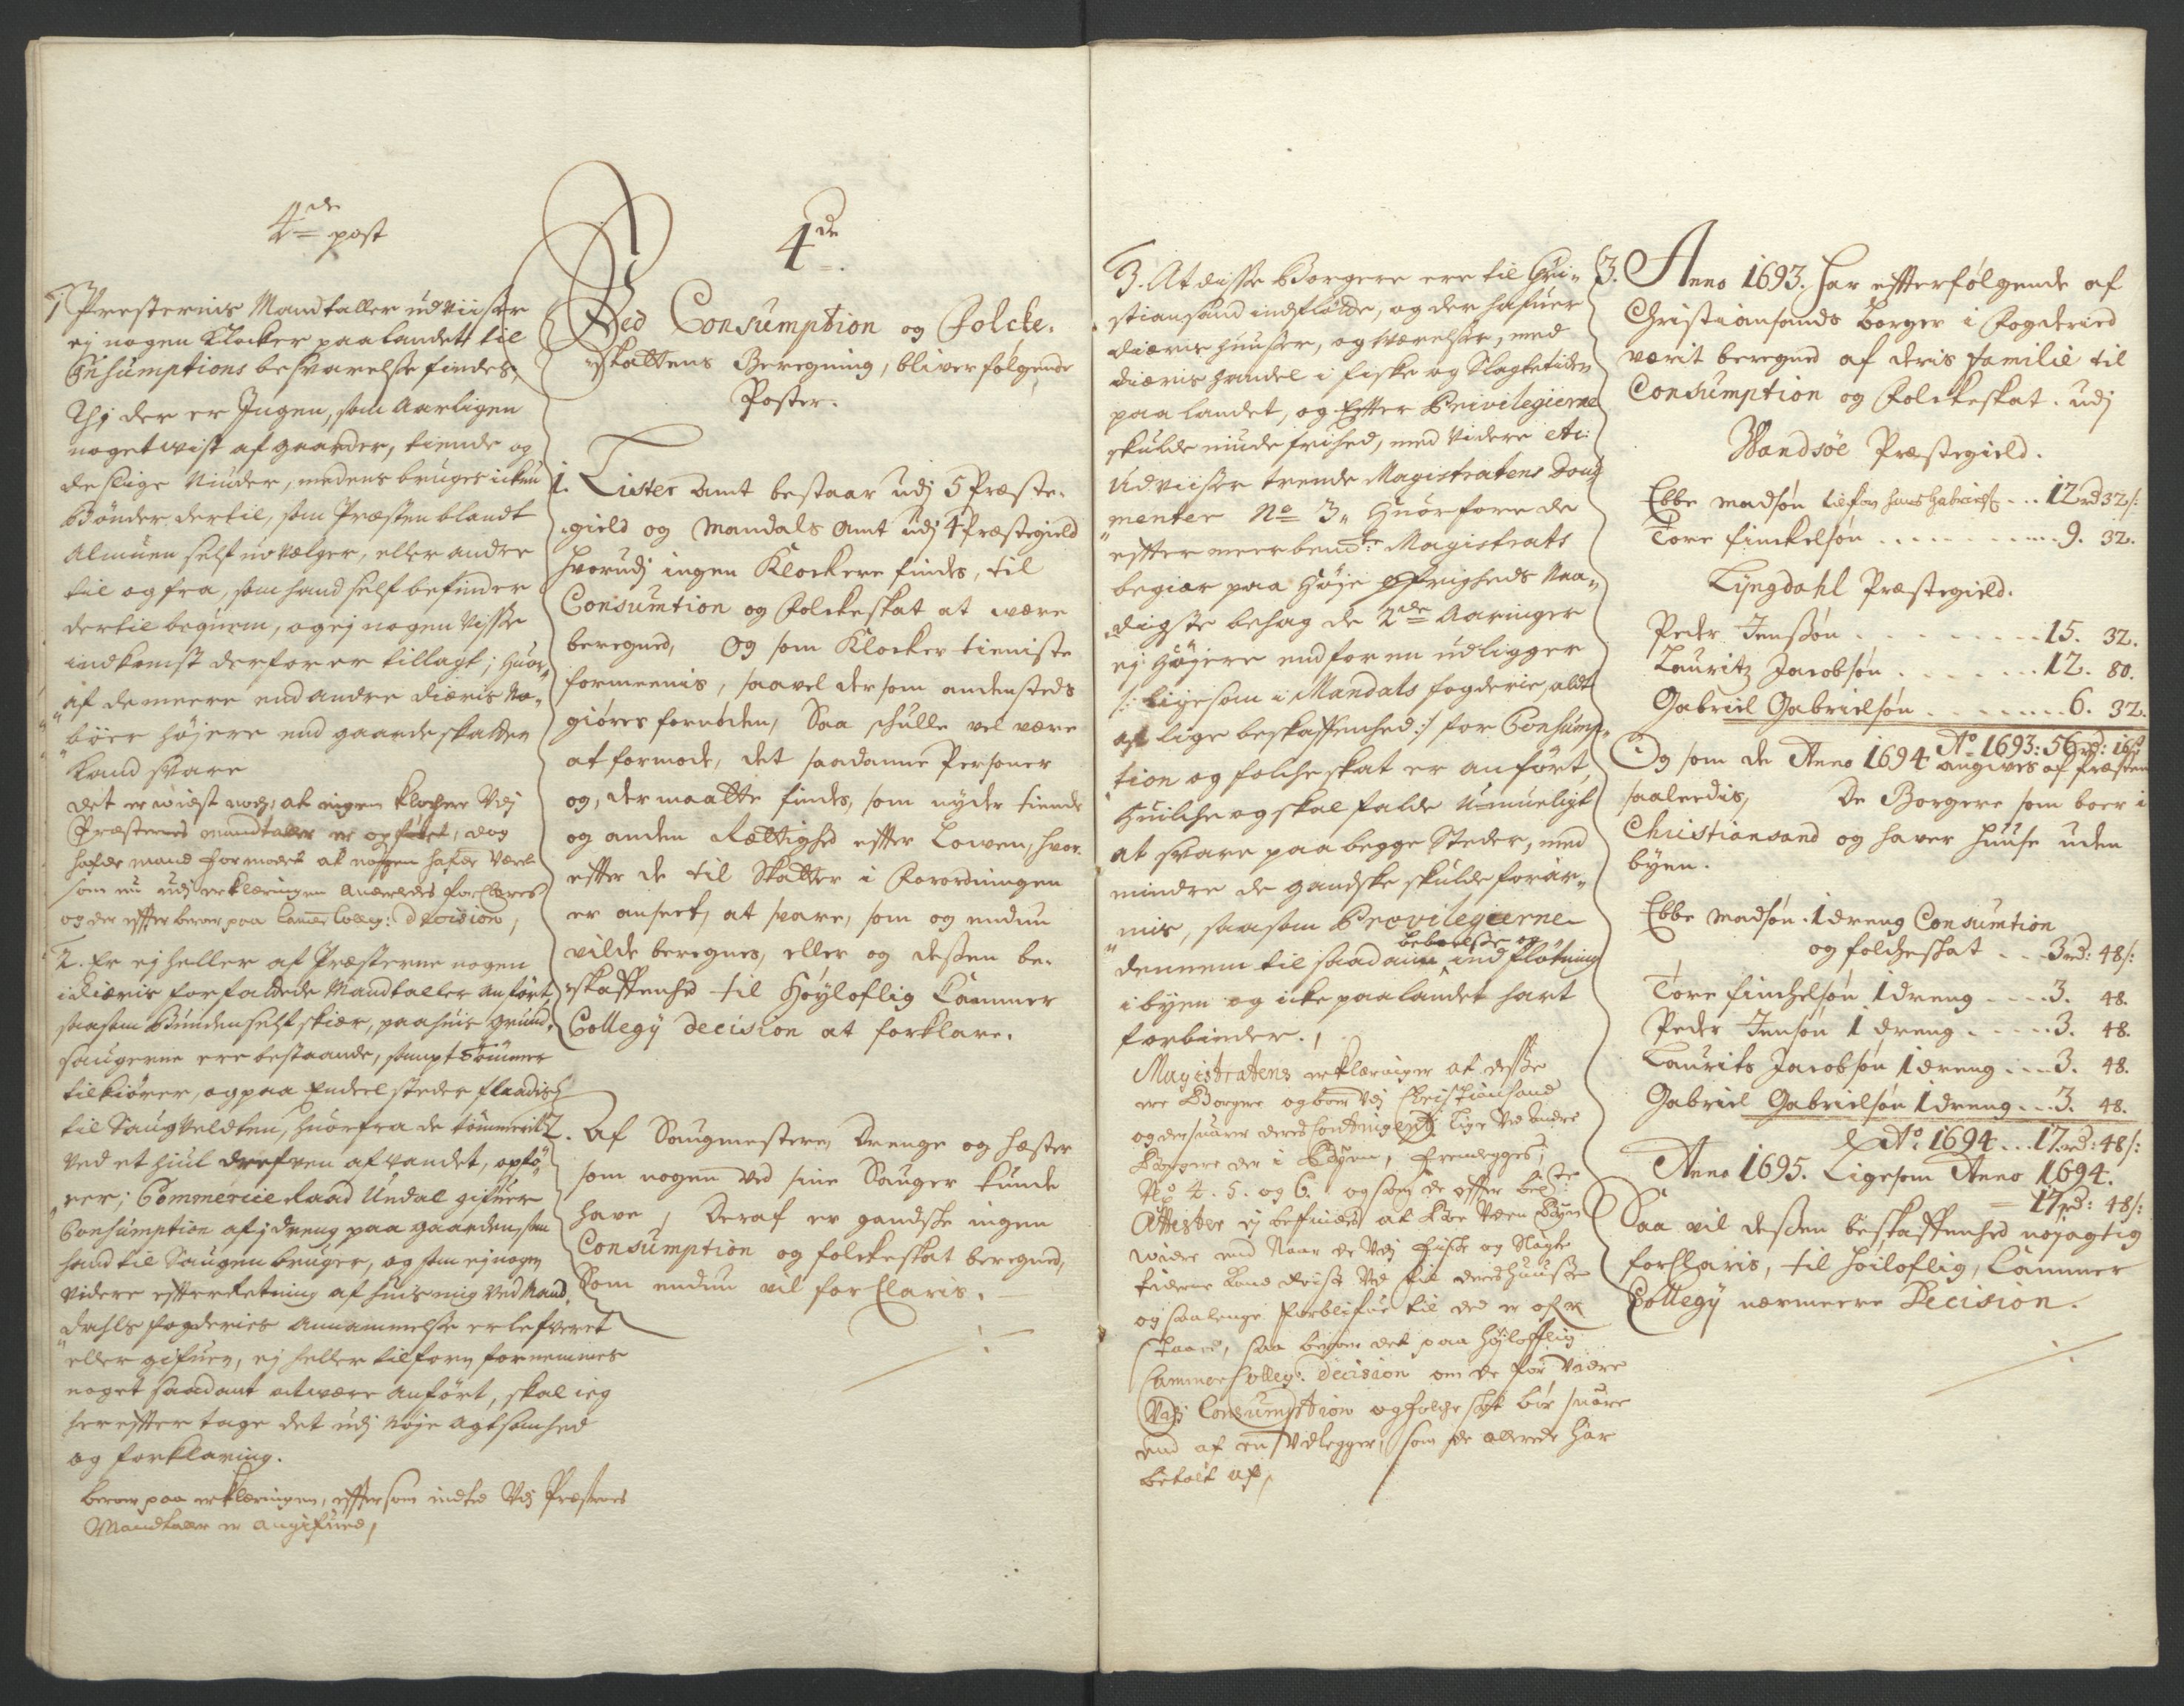 4de post
1 Presternis Mandtaller udviiser
ej nogen Klocker paa landet til
Consumptions besvarelse findes,
Thj der er Ingen, som Aarligen
noget vist af gaarder, tiende og
deslige Niuder, medens bruges ickun
Bønder dertil, som Præsten blandt
Almuen self udvelger, eller andre
til og fra, som hand self befinder
dertil beqvem, og ej nogen Visse
indkomst derfor er tillagt; huor
af de meere end andre diæris Na¬
boer højere end gaardeskatten
Kand svare
det er vidst nock, at ingen klockere Vdj
Præsternes mandtaller er opført, dog
hafde mand formodet at nogen hafde været
som nu udj erklæringen anderledes forklares
og der effter beror paa Camer Colleg: decision,
2. Er ej heller af Præsterne nogen
i diæris forfattede Mandtaller anført
saasom Bunden self skiær, paa huis grund
saugerne ere bestaaende, sampt tømmer
tilkiører, og paa Endeel steder flaadis
til Saugveldten, huorfra de tømmerit
ved et hiul drefven af vandet, opfø¬
rer; Commercie Raad Undal gifuer
Consumption af 1 dreng paa gaarden, som
hand til Saugen bruger, og som ej nogen
videre efterretning af huis mig ved Mand¬
dahls fogderies annammelse er lefveret
eller gifuen, ej heller tilforn fornemmes
noget saadant at være anført, skal ieg
hereffter tage det udj nøje agtsomhed
og forklaring.
beror paa erklæringen, effter som indted Vdj Præsternes
Mandtaller er angifued,
4de
Ved Consumption og Folcke¬
skattens Beregning, bliver følgende
Poster.
1. Lister Amt bestaar udj 5 Præste¬
gield og Mandals Amt udj 4 Præstegield
hvorudj ingen Klockere findes, til
Consumtion og Folckeskat at være
beregned, Og som Klocker tieniste
formeenis, saavel der som andensteds
giøres fornøden, Saa skulle vel være
at formode, det saadanne Personer
og, der maatte findes, som nyder tiende
og anden Rettighed effter Lowen, hvor¬
effter de til Skatter i Forordningen
er anseet, at svare, som og endnu
vilde beregnes, eller og dessen be¬
skaffenhed til Höyloflig Cammer
Collegij decision at forklare.
2. Af Saugmestere, Drenge og Hæster
som nogen ved sine Sauger kunde
have, Deraf er gandske ingen
Consumption og folckeskat beregned,
Som endnu vil forklaris.
3. At disse Borgere ere til Chri¬
stiansand indfløtte, og der hafuer
diæris huuser, og værelser, med
diæris handel i fiske og Slagtetiden
paa landet, og Effter Privilegierne
skulde niude frihed, med videre etc:
Udviiser trende Magistratens Docu
menter No 3, Huorfore de
effter meerbemte Magistrats
begiær paa Høje øfrigheds Naa¬
digste behag de 2de Aaringer
ej højere end for en udligger
/: ligesom i Mandals fogderie, aldt
af lige beskaffenhed :/ for Consump¬
tion og folcheskat er anført,
Huilche og skal falde U-mueligt
at svare paa begge Steder, med
mindre de gandske skulde forar¬
mis, saasom Privilegierne
beboelse og
dennem til saadann indfløtning
i byen og icke paa landet hart
forbinder.
Magistratens erklæringer at desse
ere Borgere og boer Vdj Christiansand
og der suarer deres Contingent lige ved andre
Borgere der i Byen, fremlegges,
No 4. 5. og 6. og som de effter bemte
Attester ej befindes at boe uden Byen
widere end Naar de Vdj fische og Slagte
tiderne kand Reise Ved til deres huusse
og saa lenge forblifue til det er offuer
staaed, saa beroer det paa Høyloflig
Cammer Colleg: decision om de for widre
Vdj Consumption og folche skat bør suare
end af en Vdlegger, som de allerede har
betalt af,
3. Anno 1693. har effterfølgende af
Christiansands borger i Fogderied
værit beregned af deris familie til
Consumption og Folckeskat. udj
Wandsöe Præstegield.
Ebbe Madsøn tilforn hans Gabrielsen ... 12 rd 32 s:
Tore finckelsøn ... 9. 32.
Lyngdahl Præstegield.
Peder Jenssøn ... 15. 32.
Lauritz Jacobsøn ... 12. 80.
Gabriel Gabrielsøn ... 6. 32.
Ao 1693: 56 rd: 16 s
Og som de Anno 1694 angives af Præsten
saaledis, De Borgere som boer i
Christiansand og haver huuse uden
byen.
Ebbe Madsøn. 1 dreng Consumtion
og folcheskat ... 3 rd: 48 s:
Tore finchelsøn 1 dreng ... 3. 48.
Peder Jensøn 1 dreng ... 3. 48.
Laurits Jacobsøn 1 dreng ... 3. 48.
Gabriel Gabrielsøn 1 dreng ... 3. 48.
Ao 1694 ... 17 rd: 48 s:
Anno 1695. Ligesom Anno 1694.
17 rd: 48 s:
Saa vil dessen beskaffenhed nøjagtig
forklaris, til høiloflig, Cammer
Collegij nærmeere Decision.